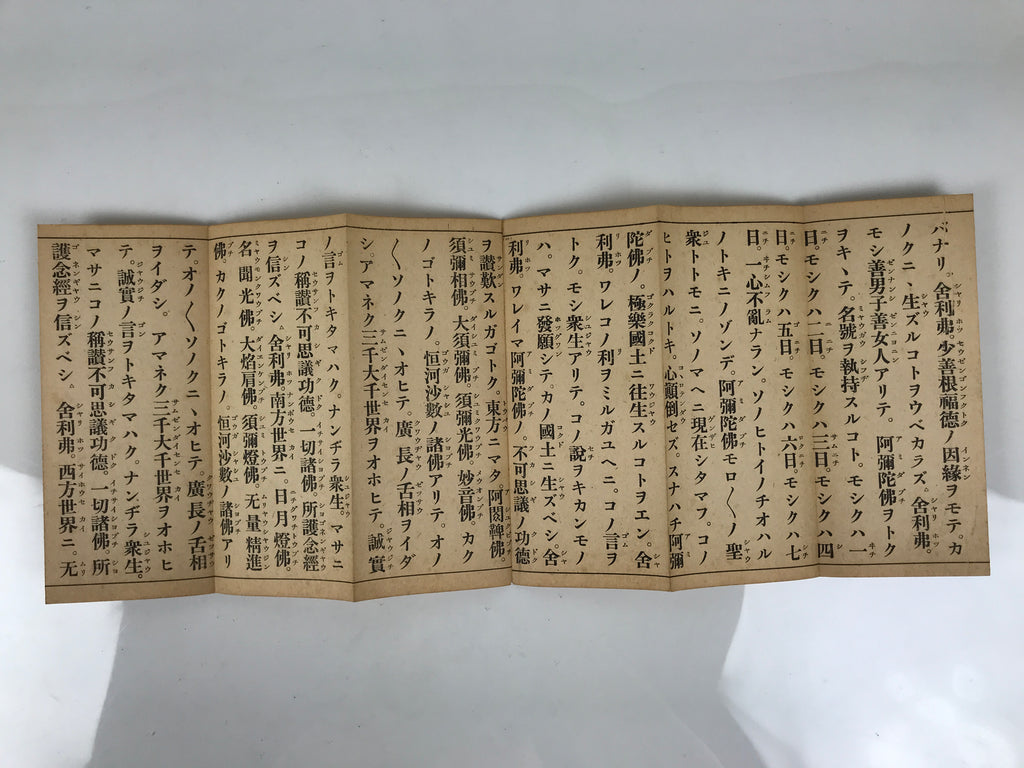 バナリ。舍利弗少善根福德ノ因緣ヲモテ。カ
ノクニヽ生ズルコトヲウベカラズ。舍利弗。
モシ善男子善女人アリテ。阿彌陀佛ヲトク
ヲキヽテ。名號ヲ執持スルコト。モシクハ一
日。モシクハ二日。モシクハ三日。モシクハ四
日。モシクハ五日。モシクハ六日。モシクハ七
日。一心不亂ナラン。ソノヒトイノチオハル
ノトキニノゾンデ。阿彌陀佛モロ〱ノ聖
衆トトモニ。ソノマヘニ現在シタマフ。コノ
ヒトヲハルトキ。心顚倒セズ。スナハチ阿彌
陀佛ノ。極樂國土ニ往生スルコトヲエン。舍
利弗。ワレコノ利ヲミルガユヘニ。コノ言ヲ
トク。モシ衆生アリテ。コノ說ヲキカンモノ
ハ。マサニ發願シテ。カノ國土ニ生ズベシ。舍
利弗。ワレイマ阿彌陀佛ノ。不可思議ノ功德
ヲ讚歎スルガゴトク。東方ニマタ。阿閦鞞佛。
須彌相佛。大須彌佛。須彌光佛。妙音佛。カク
ノゴトキラノ。恒河沙數ノ諸佛アリテ。オノ
〱ソノクニヽオヒテ。廣長ノ舌相ヲイダ
シ。アマネク三千大千世界ヲオホヒテ。誠實
ノ言ヲトキタマハク。ナンヂラ衆生。マサニ
コノ稱讚不可思議功德。一切諸佛。所護念經
ヲ信ズベシ。舍利弗。南方世界ニ。日月燈佛。
名聞光佛。大焰肩佛。須彌燈佛。无量精進
佛。カクノゴトキラノ。恒河沙數ノ諸佛アリ
テ。オノ〱ソノクニヽオヒテ。廣長ノ舌相
ヲイダシ。アマネク三千大千世界ヲオホヒ
テ。誠實ノ言ヲトキタマハク。ナンヂラ衆生。
マサニコノ稱讚不可思議功德。一切諸佛。所
護念經ヲ信ズベシ。舍利弗。西方世界ニ。无